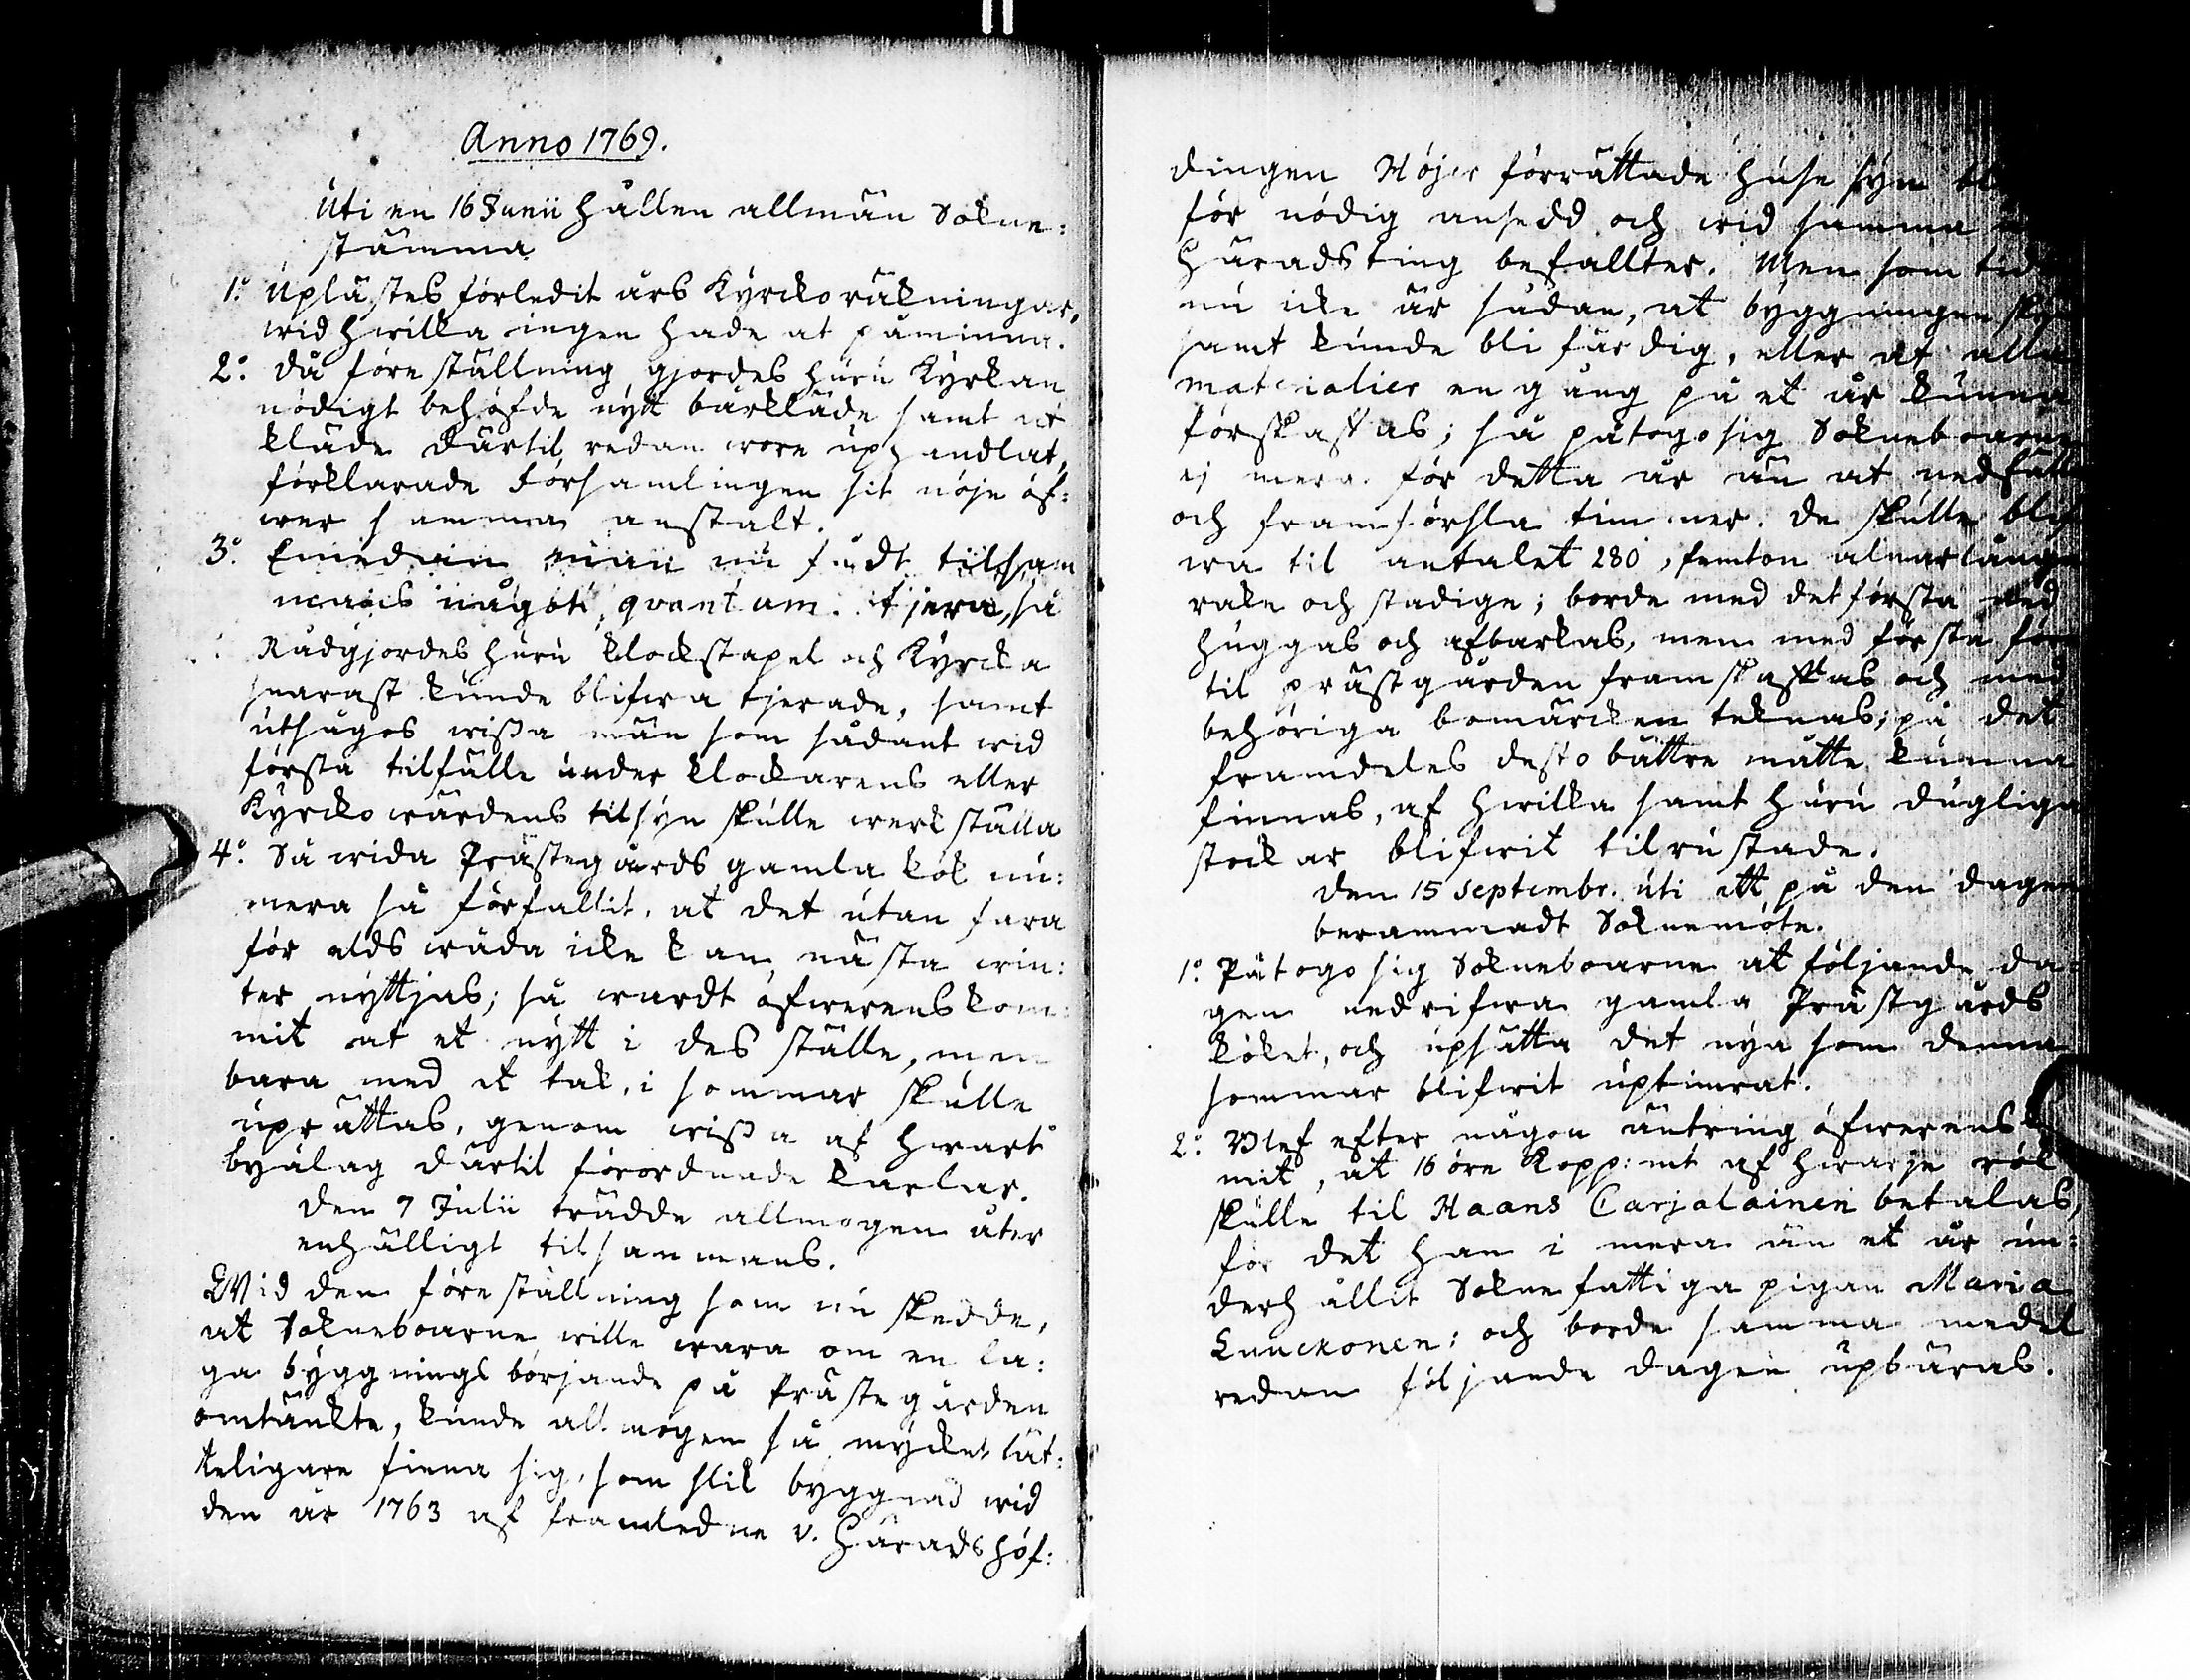 Anno 1769.
Uti en 16 Junii hållen allmän Sokne:
stämma
1:o Uplästes förledit års Kyrckoräkningar,
wid hwilka ingen hade at påminna.
2:o Då föreställning gjordes huru Kyrkan
nödigt behöfde nytt bårkläde samt at
kläde därtil redan wore uphandlat,
förklarade Församlingen sit nöje öf:
wer samma anstalt.
3:o Emedan man nu fådt tilsam
mans något qvantum tjera, så
Rådgjordes huru klockstapel och Kyrcka
snarast kunde blifwa tjerade, samt
utsågos wissa män som sådant wid
första tilfälle under klockarens eller
Kyrckowärdens tilsyn skulle werkställa
4:o Så wida Prästegårds gamla kök nu:
mera så förfallit, at det utan fara
för elds wåda icke kan nästa win:
ter nyttjas; så wardt öfwerenskom:
mit at et nytt i des ställe, men
bara med et tak, i sommar skulle
uprättas, genom wissa af hwart
byälag därtil förordnade karlar.
Den 7 Julii trädde allmogen åter
enhälligt tilsammans.
Wid den föreställning som nu skedde,
at Sokneboarne wille wara om en la:
ga byggnings börjande på Prästegården
omtänkte, kunde allmogen så mycket lät:
teligare finna sig, som slik byggnad wid
den år 1763 af framledne v. Häradshöf:
dingen Höjer förrättade huse syn
för nödig ansedd och wid samma
Häradsting befalltes. Men som tid
nu icke är sådan, at byggningen
samt kunde bli färdig, eller at alla
materialier en gång på et år kunna
förskaffas; så påtogo sig Sokneboarne
ej mera för detta år än at nedfälla
och framförsla timmer. De skulle blif
wa til antalet 280, femton alnar långa
rake och stadige; borde med det första ned
huggas och afbarkas, men med första före
til prästgården framskaffas och med
behöriga bomärcken teknas; på det
framdeles desto bättre måtte kunna
finnas, af hwilka samt huru dugliga
stockar blifwit tilrustade.
Den 15 Septembr. uti ett på den dagen
berammadt Soknemöte.
1:o Påtogo sig Sokneboarne at följande da:
gen nedrifwa gamla Prästgårds
köket, och upsätta det nya som denna
sommar blifwit uptimrat.
2:o Blef efter någon äntring öfwerens
mit, at 16 öre Kopp:mt af hwarje rök
skulle til Haans Carjalainen betalas,
för det han i mera än et år un:
derhållit Sokne fattiga pigan Maria
Luuckonen; och borde samma medel
redan följande dagen upbäras.